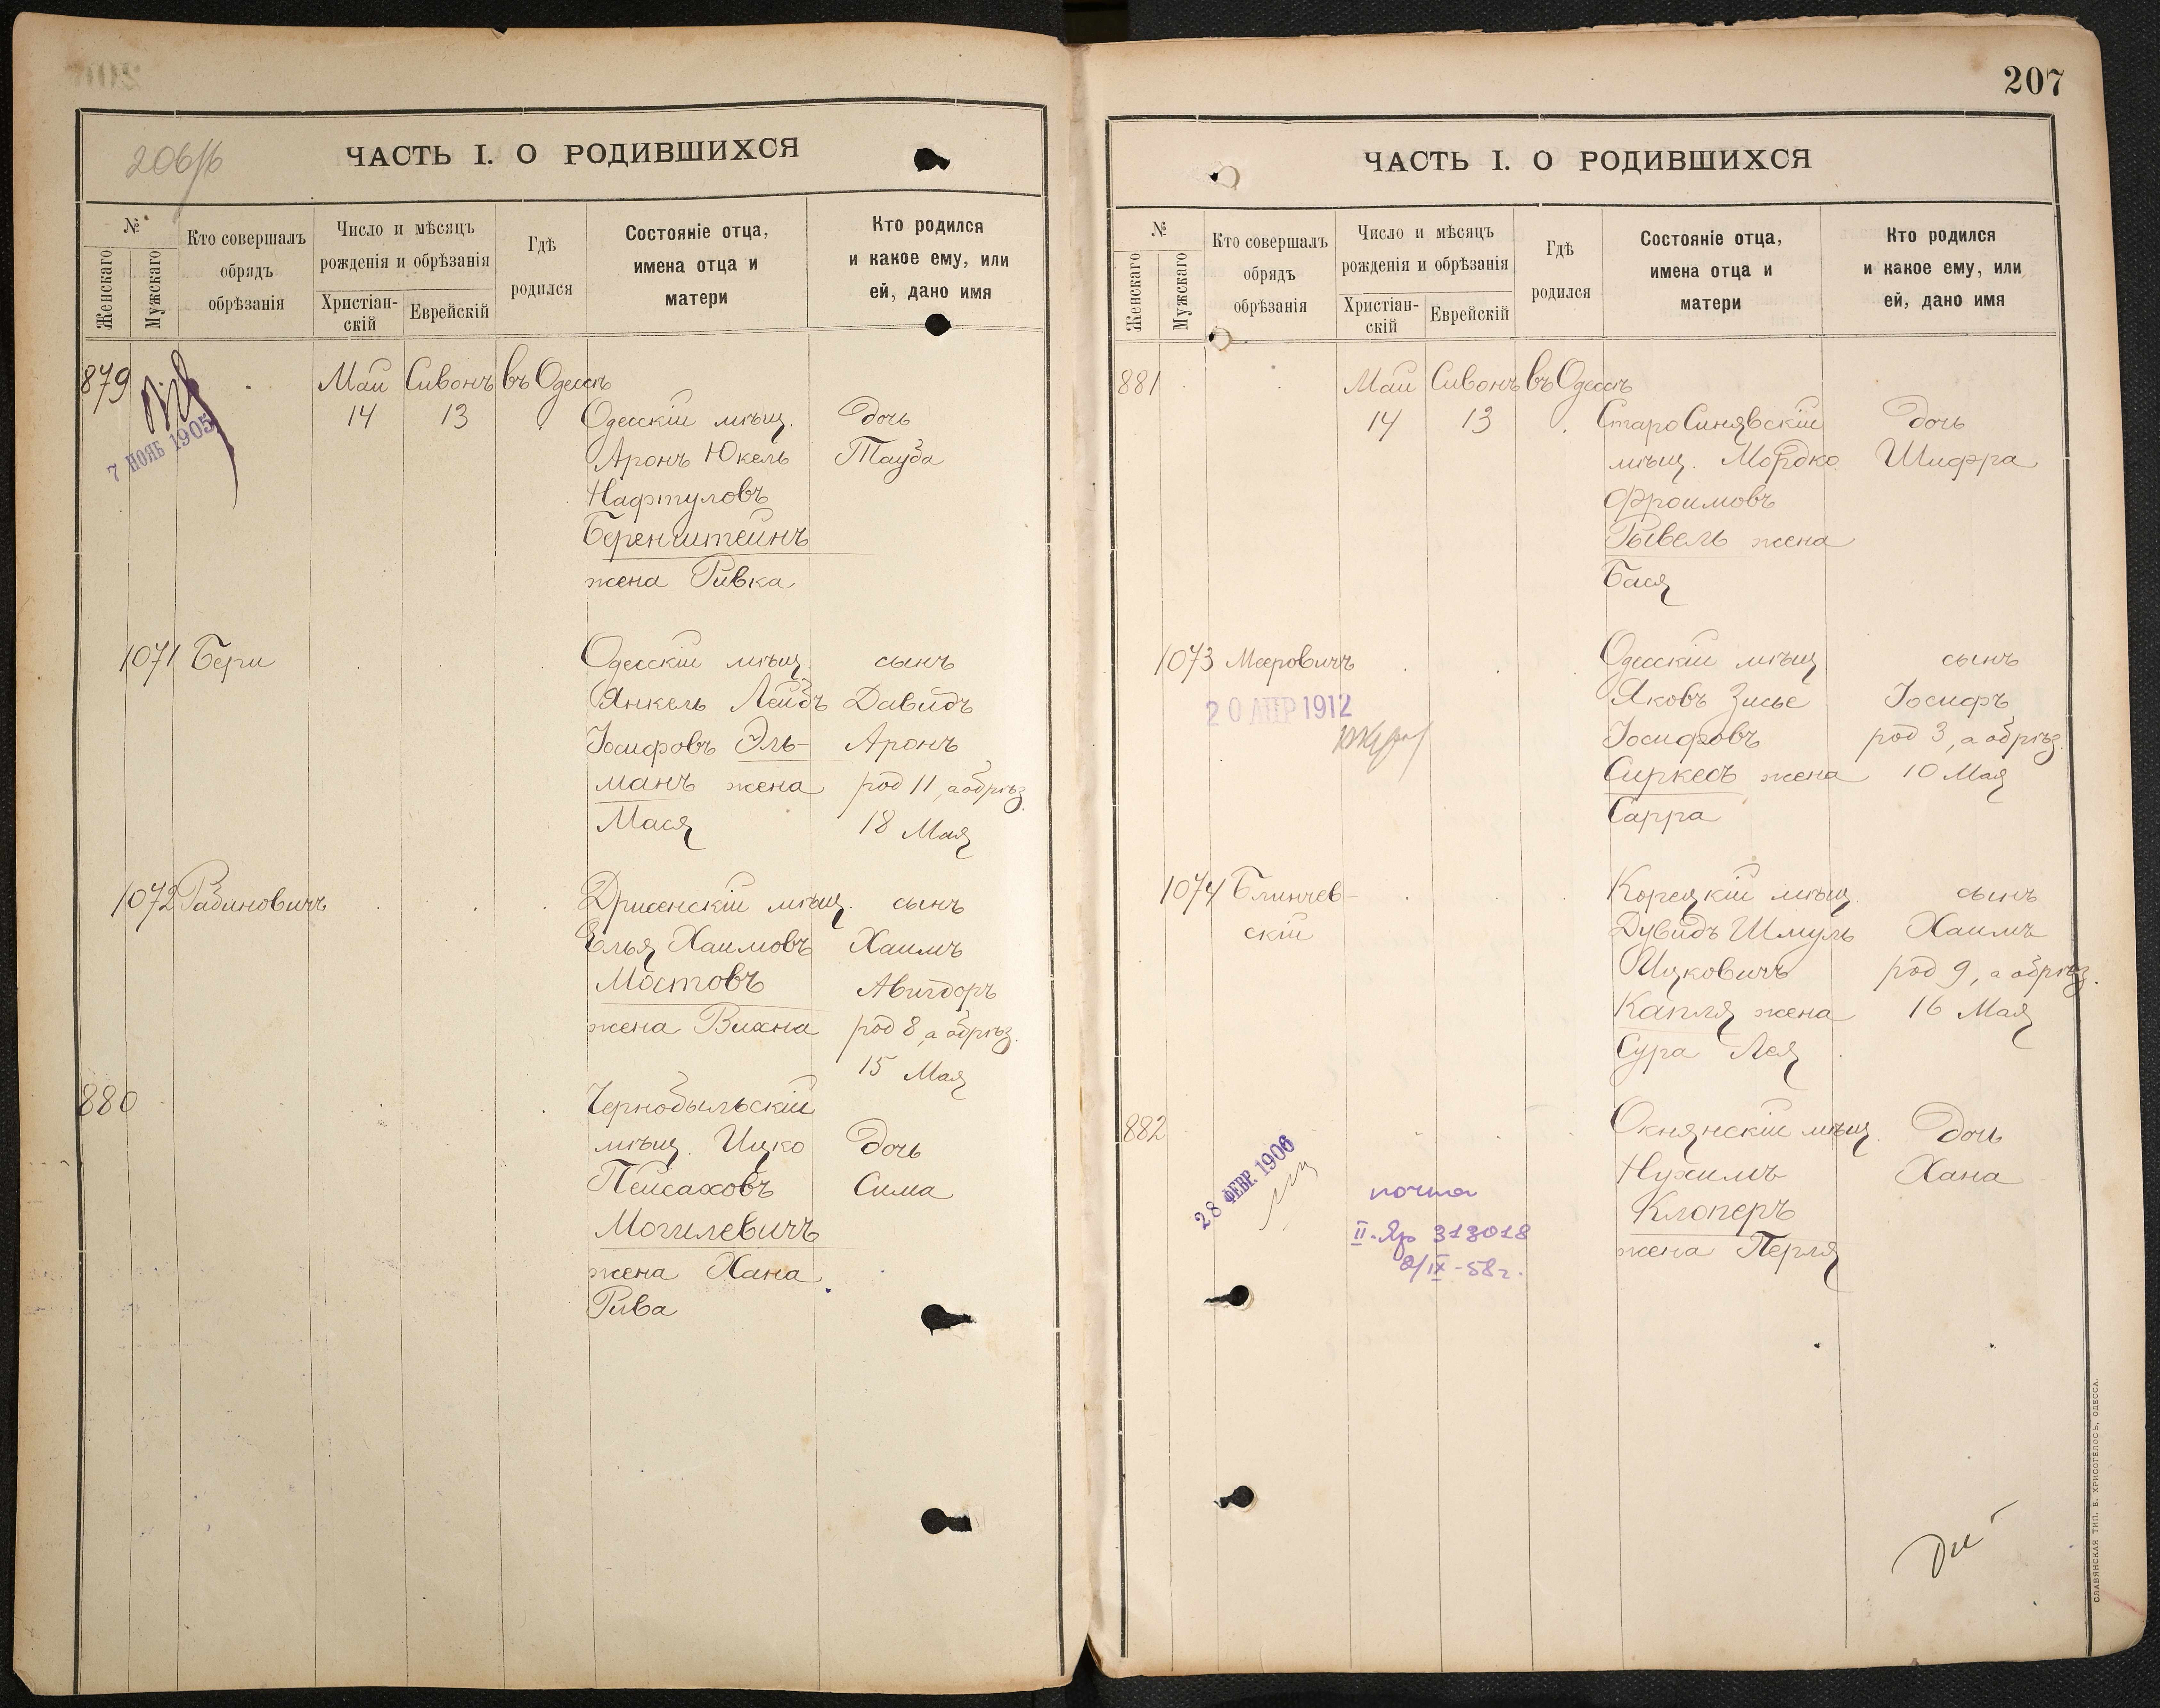 206/б
ЧАСТЬ I. О РОДИВШИХСЯ
№
Женскаго
Мужскаго
Кто совершалъ
обрядъ
обрѣзанія
Число и мѣсяцъ
рожденія и обрѣзанія
Христіан-
скій
Еврейскій
Гдѣ
родился
Состояніе отца,
имена отца и
матери
Кто родился
и какое ему, или
ей, дано имя
879 Май Сивонъ въ Одессѣ
14 13 Одесскій мѣщ. дочь
7 НОЯБ 1905
Аронъ Юкель Тауба
Нафтуловъ
Беренштейнъ
жена Ривка
1071 Бери Одесскій мѣщ. сынъ
Янкель Лейбъ Давидъ
Іосифовъ Эль- Аронъ
манъ жена род 11, а обрѣз.
Мася 18 Мая
1072 Рабиновичъ Дрисенскій мѣщ. сынъ
Елья Хаимовъ Хаимъ
Мостовъ Авигдоръ
жена Вихна род 8, а обрѣз.
15 Мая
880 Чернобыльскій
мѣщ. Ицко дочь
Пейсаховъ Сима
Могилевичъ
жена Хана
Рива
207
ЧАСТЬ I. О РОДИВШИХСЯ
№
Женскаго
Мужскаго
Кто совершалъ
обрядъ
обрѣзанія
Число и мѣсяцъ
рожденія и обрѣзанія
Христіан-
скій
Еврейскій
Гдѣ
родился
Состояніе отца,
имена отца и
матери
Кто родился
и какое ему, или
ей, дано имя
881 Май Сивонъ въ Одессѣ
14 13 СтароСинявскій дочь
мѣщ. Мордко Шифра
Фроимовъ
Рывель жена
Бася
1073 Мееровичъ Одесскій мѣщ. сынъ
20 АПР 1912
Яковъ Зисье Іосифъ
Іосифовъ род 3, а обрѣз.
Сиркесъ жена 10 Мая
Сарра
1074 Блинчев- Корецкій мѣщ. сынъ
скій Дувидъ Шмуль Хаимъ
Ицковичъ род 9, а обрѣз.
Капля жена 16 Мая
Сура Лея
882 Окнянскій мѣщ. дочь
28 ФЕВР. 1906
Нухимъ Хана
Клоперъ
жена Перля
почта
II-Яр 313018
2/IX-58г.
СЛАВЯНСКАЯ ТИП. Е. ХРИСОГЕЛОСЪ, ОДЕССА.